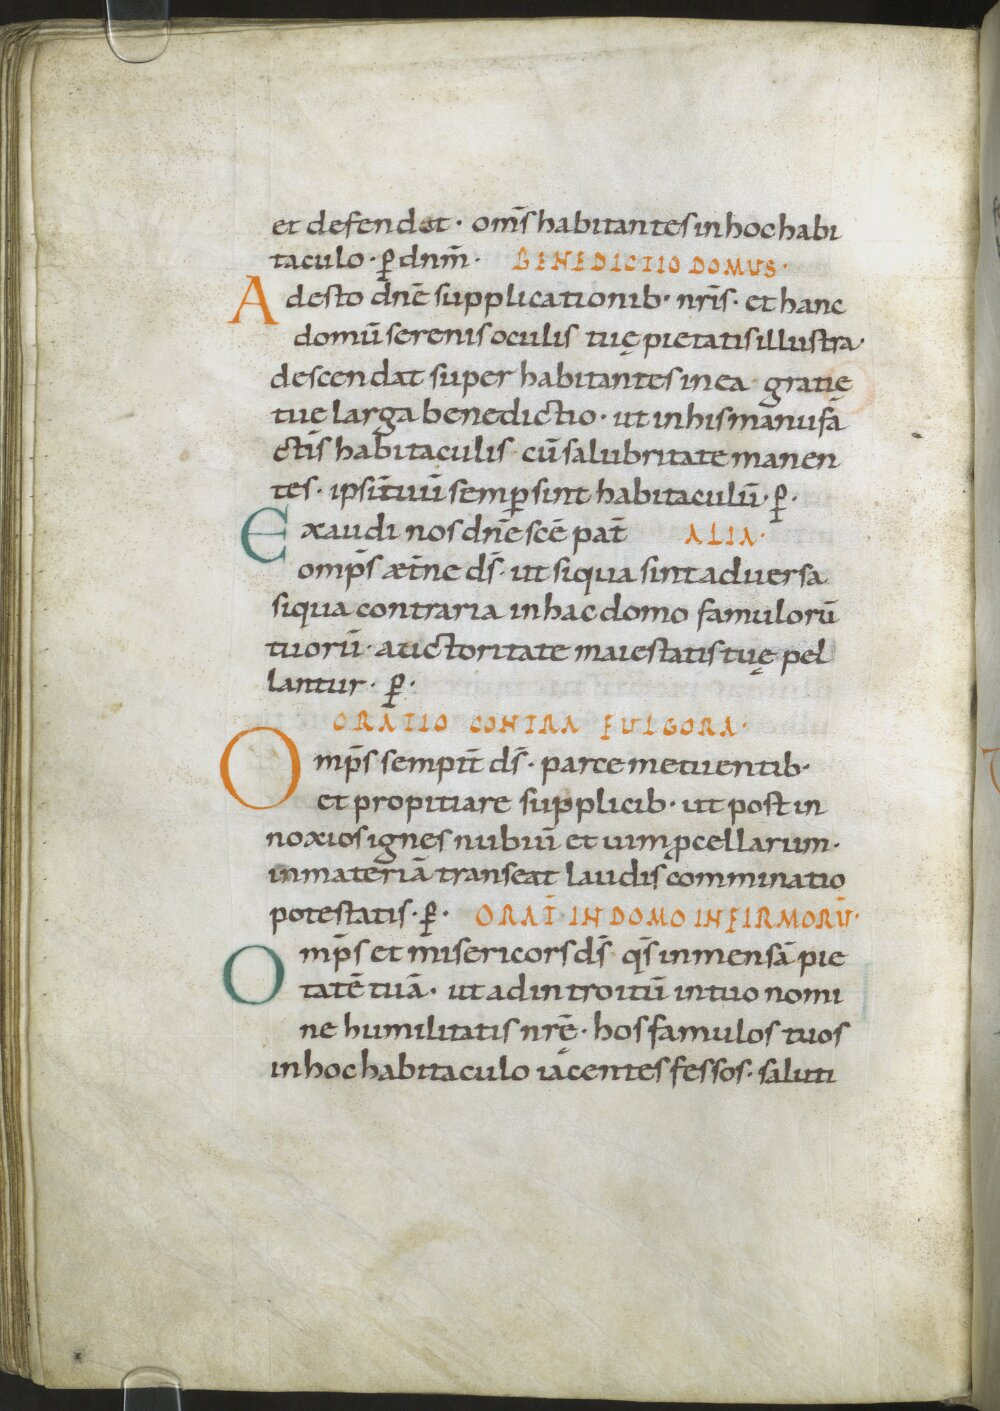 et defendat · om̄s habitantes in hoc habi
taculo · ꝑ dnm̄ · BENEDICTIO DOMUS ·
Adesto dn̄e supplicationib· nr̄is · et hanc
domū serenis oculis tuę pietatis illustra ·
descendat super habitantes in ea gratię
tuę larga benedictio · ut in his manufa
ctis habitaculis cū salubritate manen
tes · ipsi tuū semꝑ sint habitaculū · ꝑ ·
Exaudi nos dn̄e sc̄e pat̄ ALIA ·
omp̄s æt̄ne ds̄ · ut siqua sint aduersa
siqua contraria in hac domo famulorū
tuorū · auctoritate maiestatis tuę pel
lantur · ꝑ ·
ORATIO CONTRA FULGORA ·
Omp̄s sempit̄ ds̄ · parce metuentib·
et propitiare supplicib· ut post in
noxios ignes nubiū et uim ꝓcellarum ·
in materiā transeat laudis comminatio
potestatis · ꝑ · ORAT̄ IN DOMO INFIRMORŪ ·
Omp̄s et misericors ds̄ qs̄ inmensā pie
tatē tuā · ut ad introitū in tuo nomi
ne humilitatis nr̄ę · hos famulos tuos
in hoc habitaculo iacentes fessos · saluti